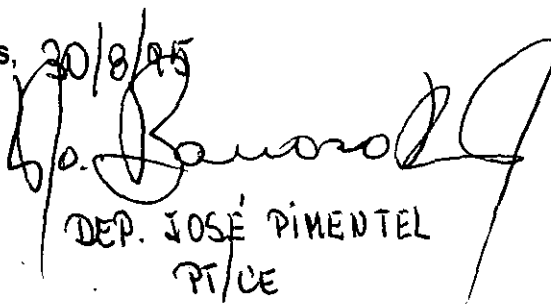 s, 30/8/95
DEP. JOSÉ PIMENTEL
PT/CE